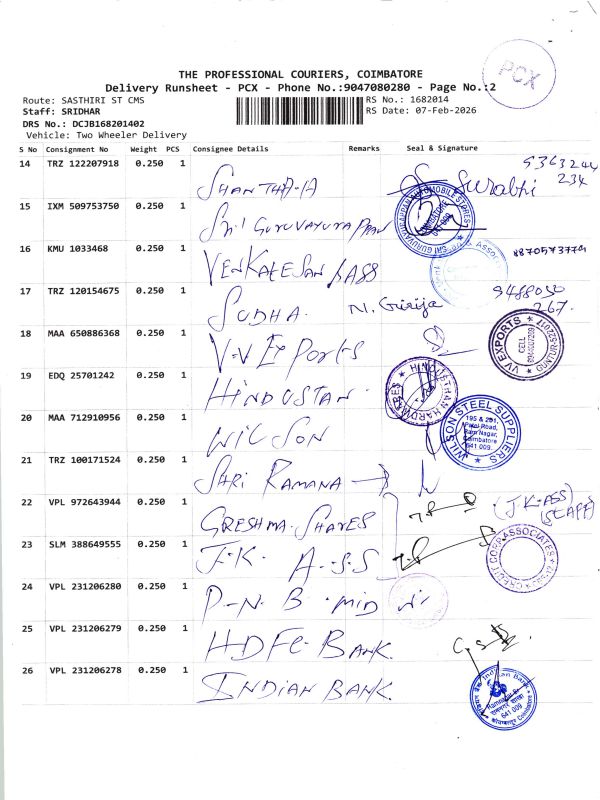 PCX
THE PROFESSIONAL COURIERS, COIMBATORE
Delivery Runsheet - PCX - Phone No.:9047080280 - Page No.:2
Route: SASTHIRI ST CMS RS No.: 1682014
Staff: SRIDHAR RS Date: 07-Feb-2026
DRS No.: DCJB168201402
Vehicle: Two Wheeler Delivery
S No Consignment No Weight PCS Consignee Details Remarks Seal & Signature
14 TRZ 122207918 0.250 1 SHANTHA-A Surabhi 9363244
234
15 IXM 509753750 0.250 1 Shri GURUVAYURAPPAN
16 KMU 1033468 0.250 1 VENKATESAN ASS
17 TRZ 120154675 0.250 1 SUDHA. N. Girija 9488050
267.
18 MAA 650886368 0.250 1 V-V EXPORTS VV EXPORTS
CELL
19 EDQ 25701242 0.250 1 HINDUSTAN. HINDUSTHAN HARDWARES
20 MAA 712910956 0.250 1 WILSON WILSON STEEL SUPPLIERS
195 & 201,
Patel Road,
Ram Nagar,
Coimbatore
641 009
21 TRZ 100171524 0.250 1 SHRI RAMANA
22 VPL 972643944 0.250 1 GRESHMA. SHARES (J.K-ASS)
(STAFF)
23 SLM 388649555 0.250 1 J.K. A.S.S CREDIT CORP ASSOCIATES
24 VPL 231206280 0.250 1 P-N. B. MID
25 VPL 231206279 0.250 1 HDFC-BANK.
26 VPL 231206278 0.250 1 INDIAN BANK. Indian Bank
641 009